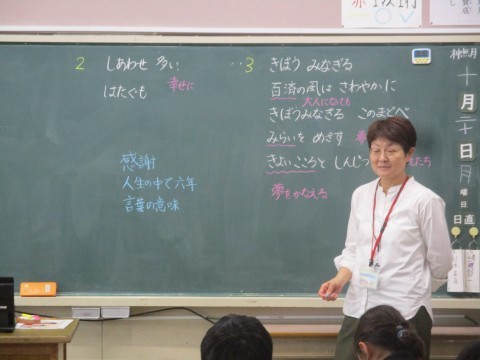 2 しあわせ 多い
はたくも 幸せに
感謝
人生の中で六年
言葉の意味
‥3 きぼう みなぎる
百済の風は さわやかに
大人になっても
きぼうみなぎる このまどべ
みらいを めざす
きよいこころと しんじつ
たち
夢をかなえる
神無月
十月二十日
月曜日
日直